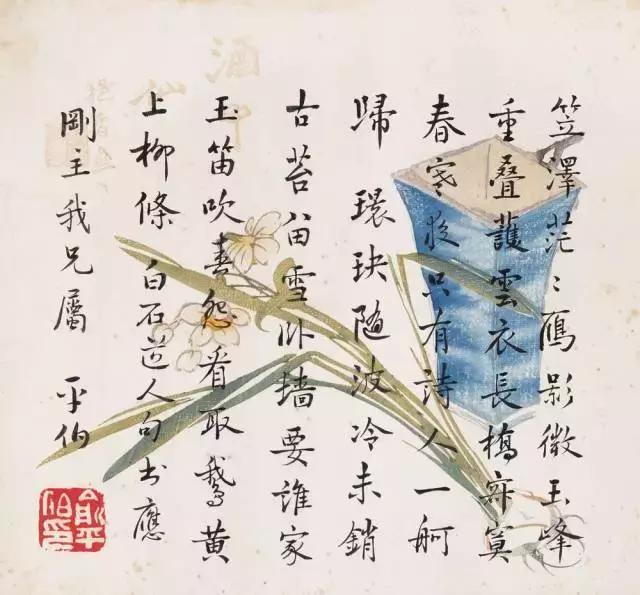 笠澤茫〻鴈影微玉峰
重叠護雲衣長橋寂寞
春寒夜只有詩人一舸
歸 環玦隨波冷未銷
古苔留雪卧墻要誰家
玉笛吹春怨看取鵞黃
上柳條 白石道人句書應
剛主我兄屬 平伯
俞平伯印
酒中仙